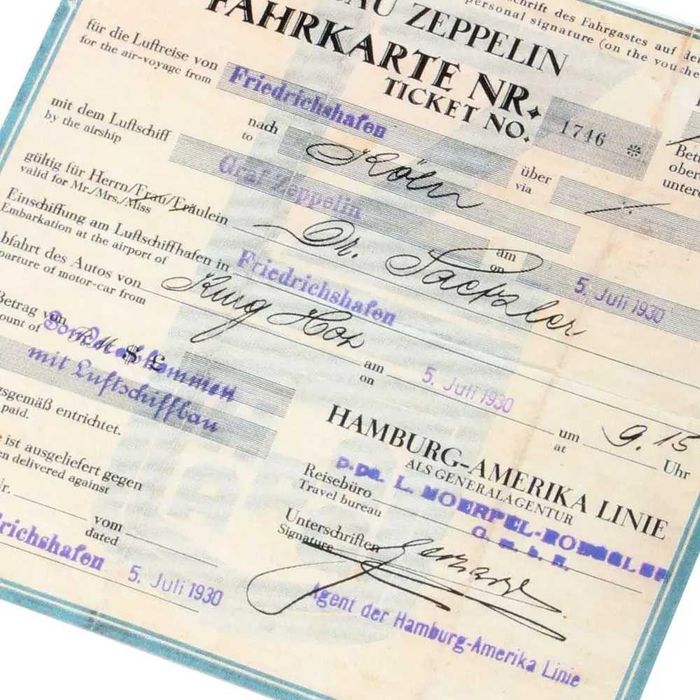 schrift des Fahrgastes auf de
personal signature (on the vouche
AU ZEPPELIN
FAHRKARTE NR.
TICKET NO.
1746 *
für die Luftreise von
for the air-voyage from
Friedrichshafen
nach
to
Köln
über
via
Bett
ober
unter
mit dem Luftschiff
by the airship
Graf Zeppelin
am
on
5. Juli 1930
gültig für Herrn/Frau/Fräulein
valid for Mr./Mrs./Miss
Dr.
Einschiffung am Luftschiffhafen in
Embarkation at the airport of
Friedrichshafen
am
on
5. Juli 1930
bfahrt des Autos von
parture of motor-car from
um
at
9.15
Uhr
Betrag von
ount of
mit Luftschiffbau
sgemäß entrichtet.
paid.
HAMBURG-AMERIKA LINIE
ALS GENERALAGENTUR
Reisebüro
Travel bureau
e ist ausgeliefert gegen
en delivered against
Unterschriften
Signature
Nr.
vom
dated
iedrichshafen
5. Juli 1930
Agent der Hamburg-Amerika Linie